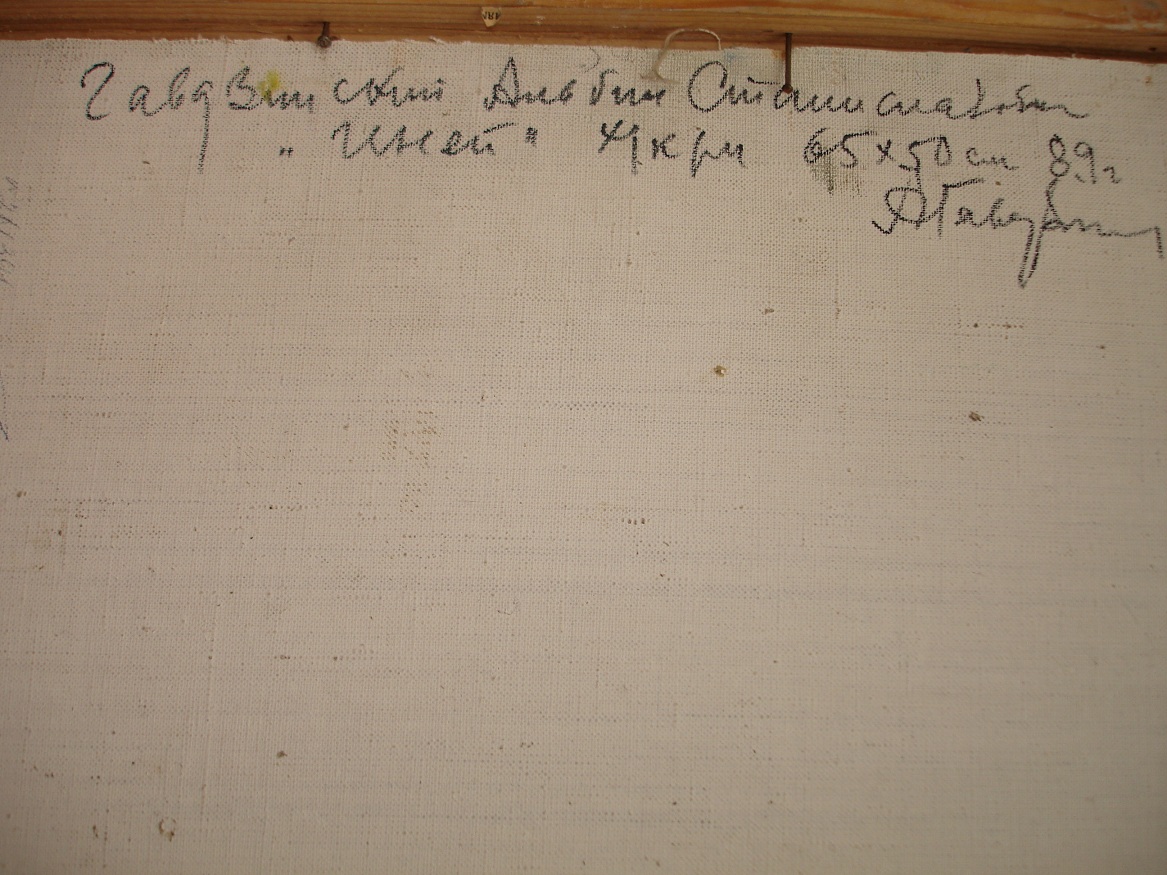 Гавдзинский Альбин Станиславович
"Иней" 65х50 см 89г
АГавдзин